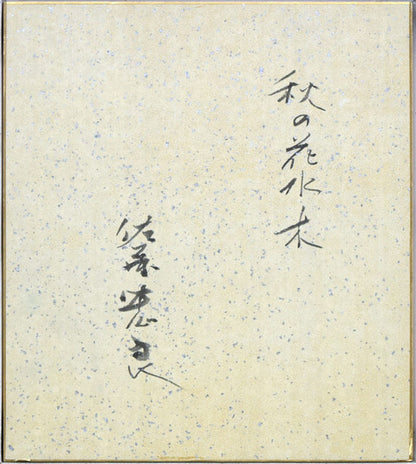 秋の花水木
佐藤忠良